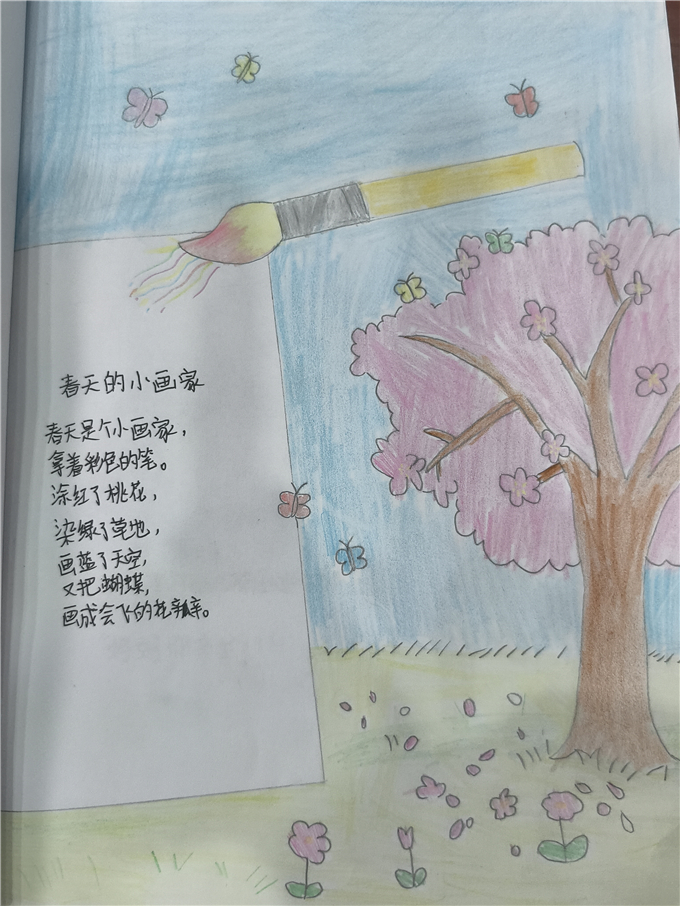 春天的小画家
春天是个小画家，
拿着彩色的笔。
涂红了桃花，
染绿了草地，
画蓝了天空，
又把蝴蝶，
画成会飞的花瓣。